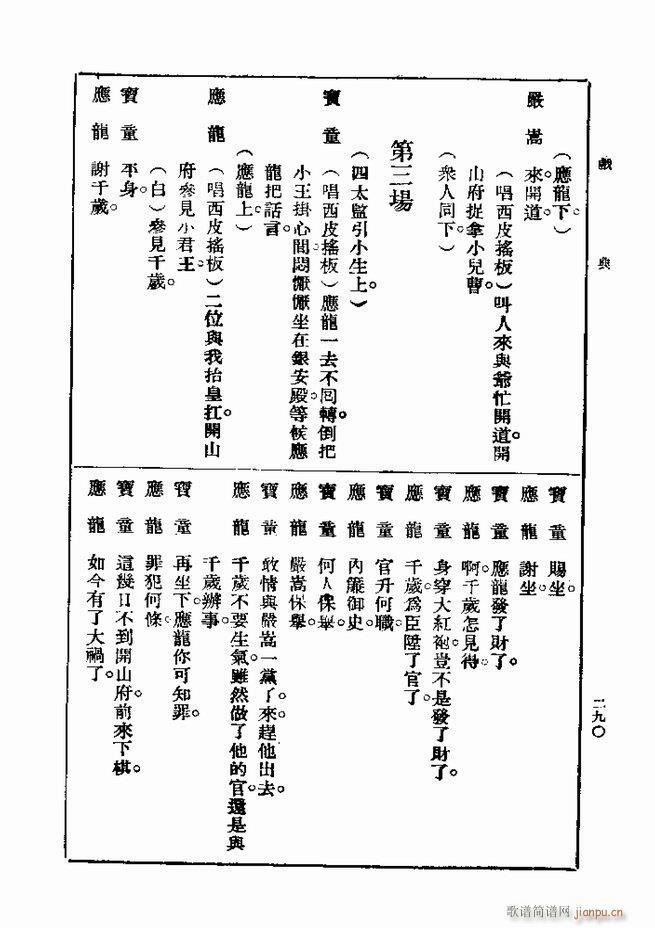 戲典
（應龍下。）
嚴嵩 來開道。
（唱西皮搖板）叫人來與爺忙開道。開
山府捉拿小兒曹。
（衆人同下。）
第三場
（四太監引小生上。）
寶童 （唱西皮搖板）應龍一去不囘轉。倒把
小王掛心間。悶懨懨坐在銀安殿。等候應
龍把話言。
（應龍上。）
應龍 （唱西皮搖板）二位與我抬皇扛。開山
府參見小君王。
（白）參見千歲。
寶童 平身。
應龍 謝千歲。
寶童 賜坐。
應龍 謝坐。
寶童 應龍發了財了。
應龍 啊。千歲怎見得。
寶童 身穿大紅袍。豈不是發了財了。
應龍 千歲。爲臣陞了官了。
寶童 官升何職。
應龍 內簾御史。
寶童 何人保舉。
應龍 嚴嵩保舉。
寶童 敢情與嚴嵩一黨了。來。趕他出去。
應龍 千歲不要生氣。雖然做了他的官。還是與
千歲辦事。
寶童 再坐下。應龍你可知罪。
應龍 罪犯何條。
寶童 這幾日不到開山府前來下棋。
應龍 如今有了大禍了。
二九〇
歌谱简谱网 jianpu.cn